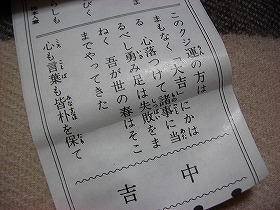 中吉
このクジ運の方は「大吉」にかは
まもなく
心落つけて諸事に当
るべし勇み足は失敗をま
ねく 吾が世の春はそこ
までやってきた
心も言葉も皆朴を保て
びく
らも